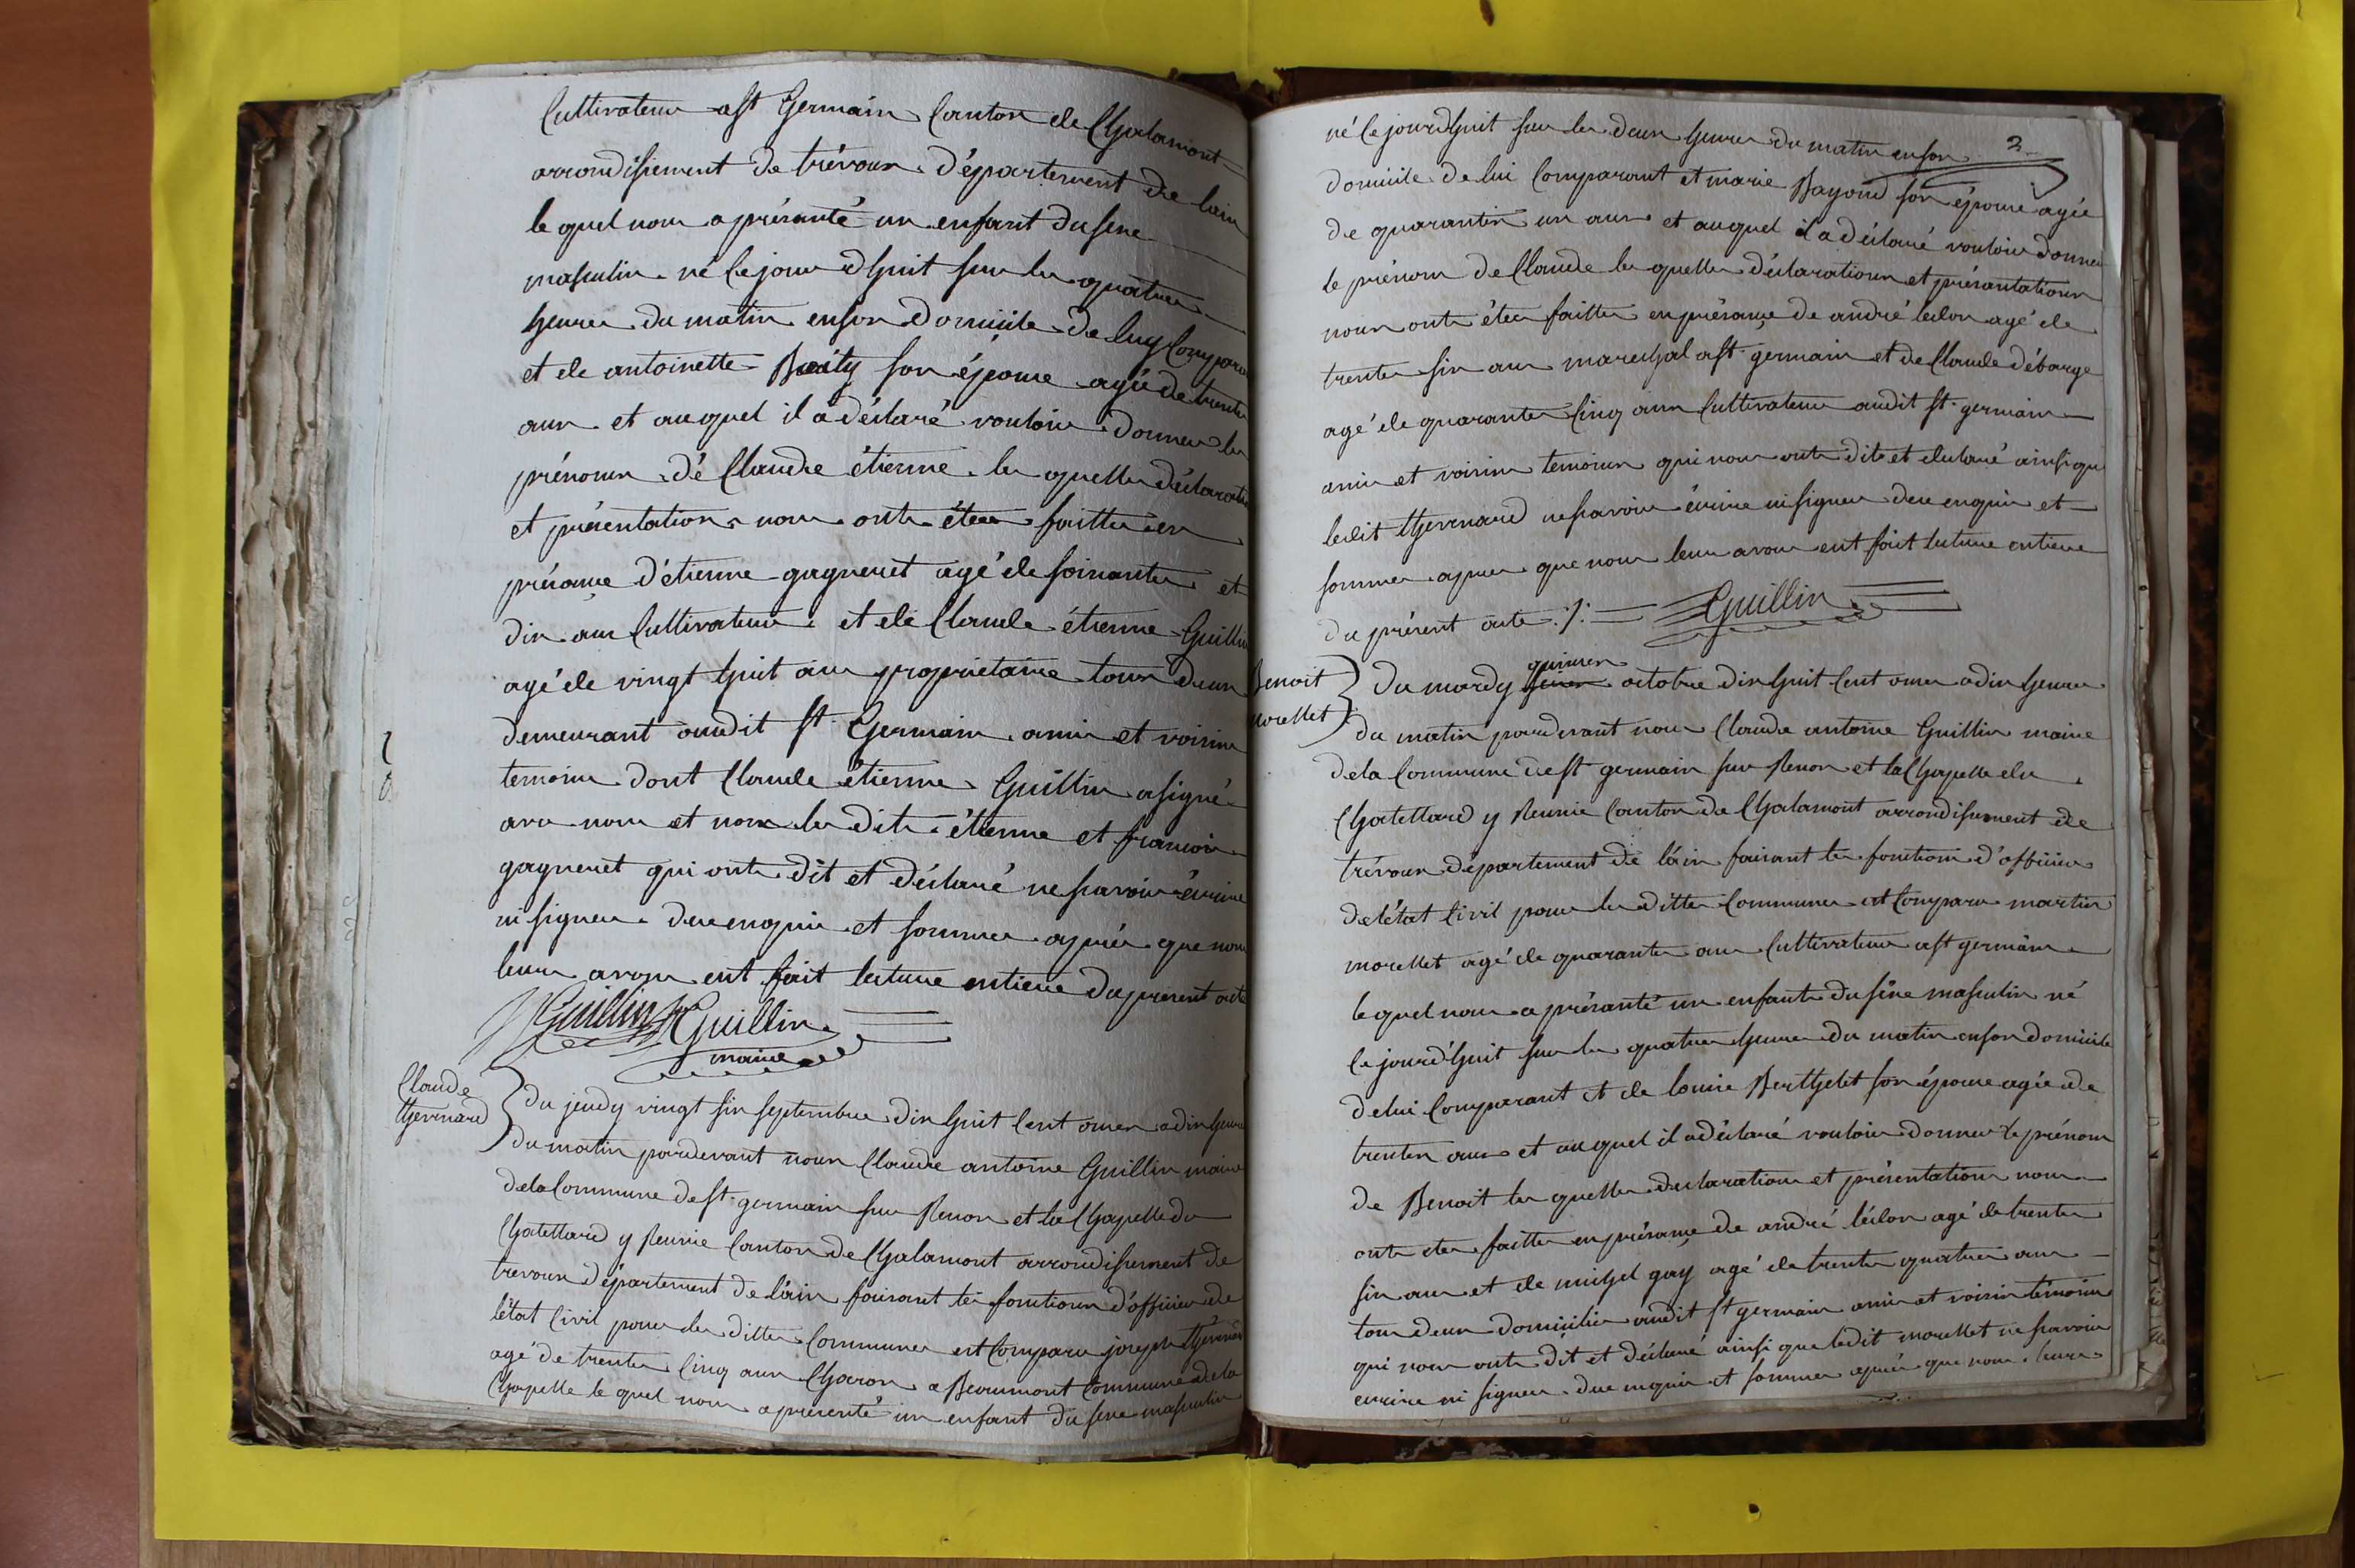 Cultivateur a st Germain Canton de Chalamont
arrondissement de trévoux département de lain
le quel nous a présanté un enfant du sexe
masculin né ce jour dhuit sur les quatres
heures du matin en son domicile de luy Compara
et de antoinette son épouse agée de trente
ans et au quel il a déclaré vouloir donner les
prénoms dé Claude étienne les quelles déclaratio
et présentations nous ont étées faittes en
présance d'étienne gagneret agé de soixantes et
dix ans Cultivateur et de Claude étienne Guillin
agé de vingt huit ans propriétaire tous deux
demeurant audit st Germain amis et voisins
temoins dont Claude étienne Guillin a signé
avec nous et non les dits étienne et francois
gagneret qui ont dit et déclaré ne savoir écrire
ni signer de ce enquis et sommés après que nous
leurs avons ent fait lecture entiere du present acte
Guillin Guillin
maire
Claude
thevenard
Du jeudy vingt six septembre dix huit cent onze a dix heures
du matin pardevant nous Claude antoine Guillin maire
de la Commune de st germain sur Renon et la Chapelle du
Chatellard y Reunie Canton de Chalamont arrondissement de
trevoux département de l'ain faisant les fonctions d'officier de
létat Civil pour les dittes Communes est Comparu joseph
agé de trentes Cinq ans Charon a Beaumont Commune de la
Chapelle le quel nous a presenté un enfant du sexe masculin
2
né ce jourdhuit sur les deux heures du matin en son
domicile de lui Comparant et marie Bayond son épouse agée
de quarantes un ans et auquel il a déclaré vouloir donner
le prénom de Claude les quelles déclarations et présantations
nous ont étées faittes en présance de andré léclon agé de
trentes six ans marechal a st germain et de Claude débarge
agé de quarantes Cinq ans Cultivateur audit st germain
amis et voisins temoins qui nous ont dit et declaré ainsi que
ledit thevenard ne savoir écrire ni signer de ce enquis et
sommés apres que nous leurs avons ent fait lecture entiere
du présent acte ./. Guillin
Benoit
morellet
quinzes
Du mardy octobre dix huit Cent onze a dix heures
du matin pardevant nous Claude antoine Guillin maire
de la Commune de st germain sur Renon et la Chapelle du
Chatellard y Reunie Canton de Chalamont arrondissement de
trévoux département de láin faisant les fonctions d'officier
de létat Civil pour les dittes Communes est Comparu martin
morellet agé de quarantes ans Cultivateur a st germain
le quel nous a présanté un enfant du séxe masculin né
ce jourd'huit sur les quatres heures du matin en son domicile
de lui Comparant et de louise Berthelet son épouse agée de
trentes ans et au quel il a déclaré vouloir donner le prénom
de Benoit les quelles declarations et présentations nous
ont etes faittes en présance de andré léclon agé de trentes
six ans et de michel gay agé de trentes quatres ans
tous deux domiciliés audit st germain amis et voisins témoins
qui nous ont dit et déclaré ainsi que ledit morellet ne savoir
ecrire ni signer de ce enquis et sommés après que nous leurs